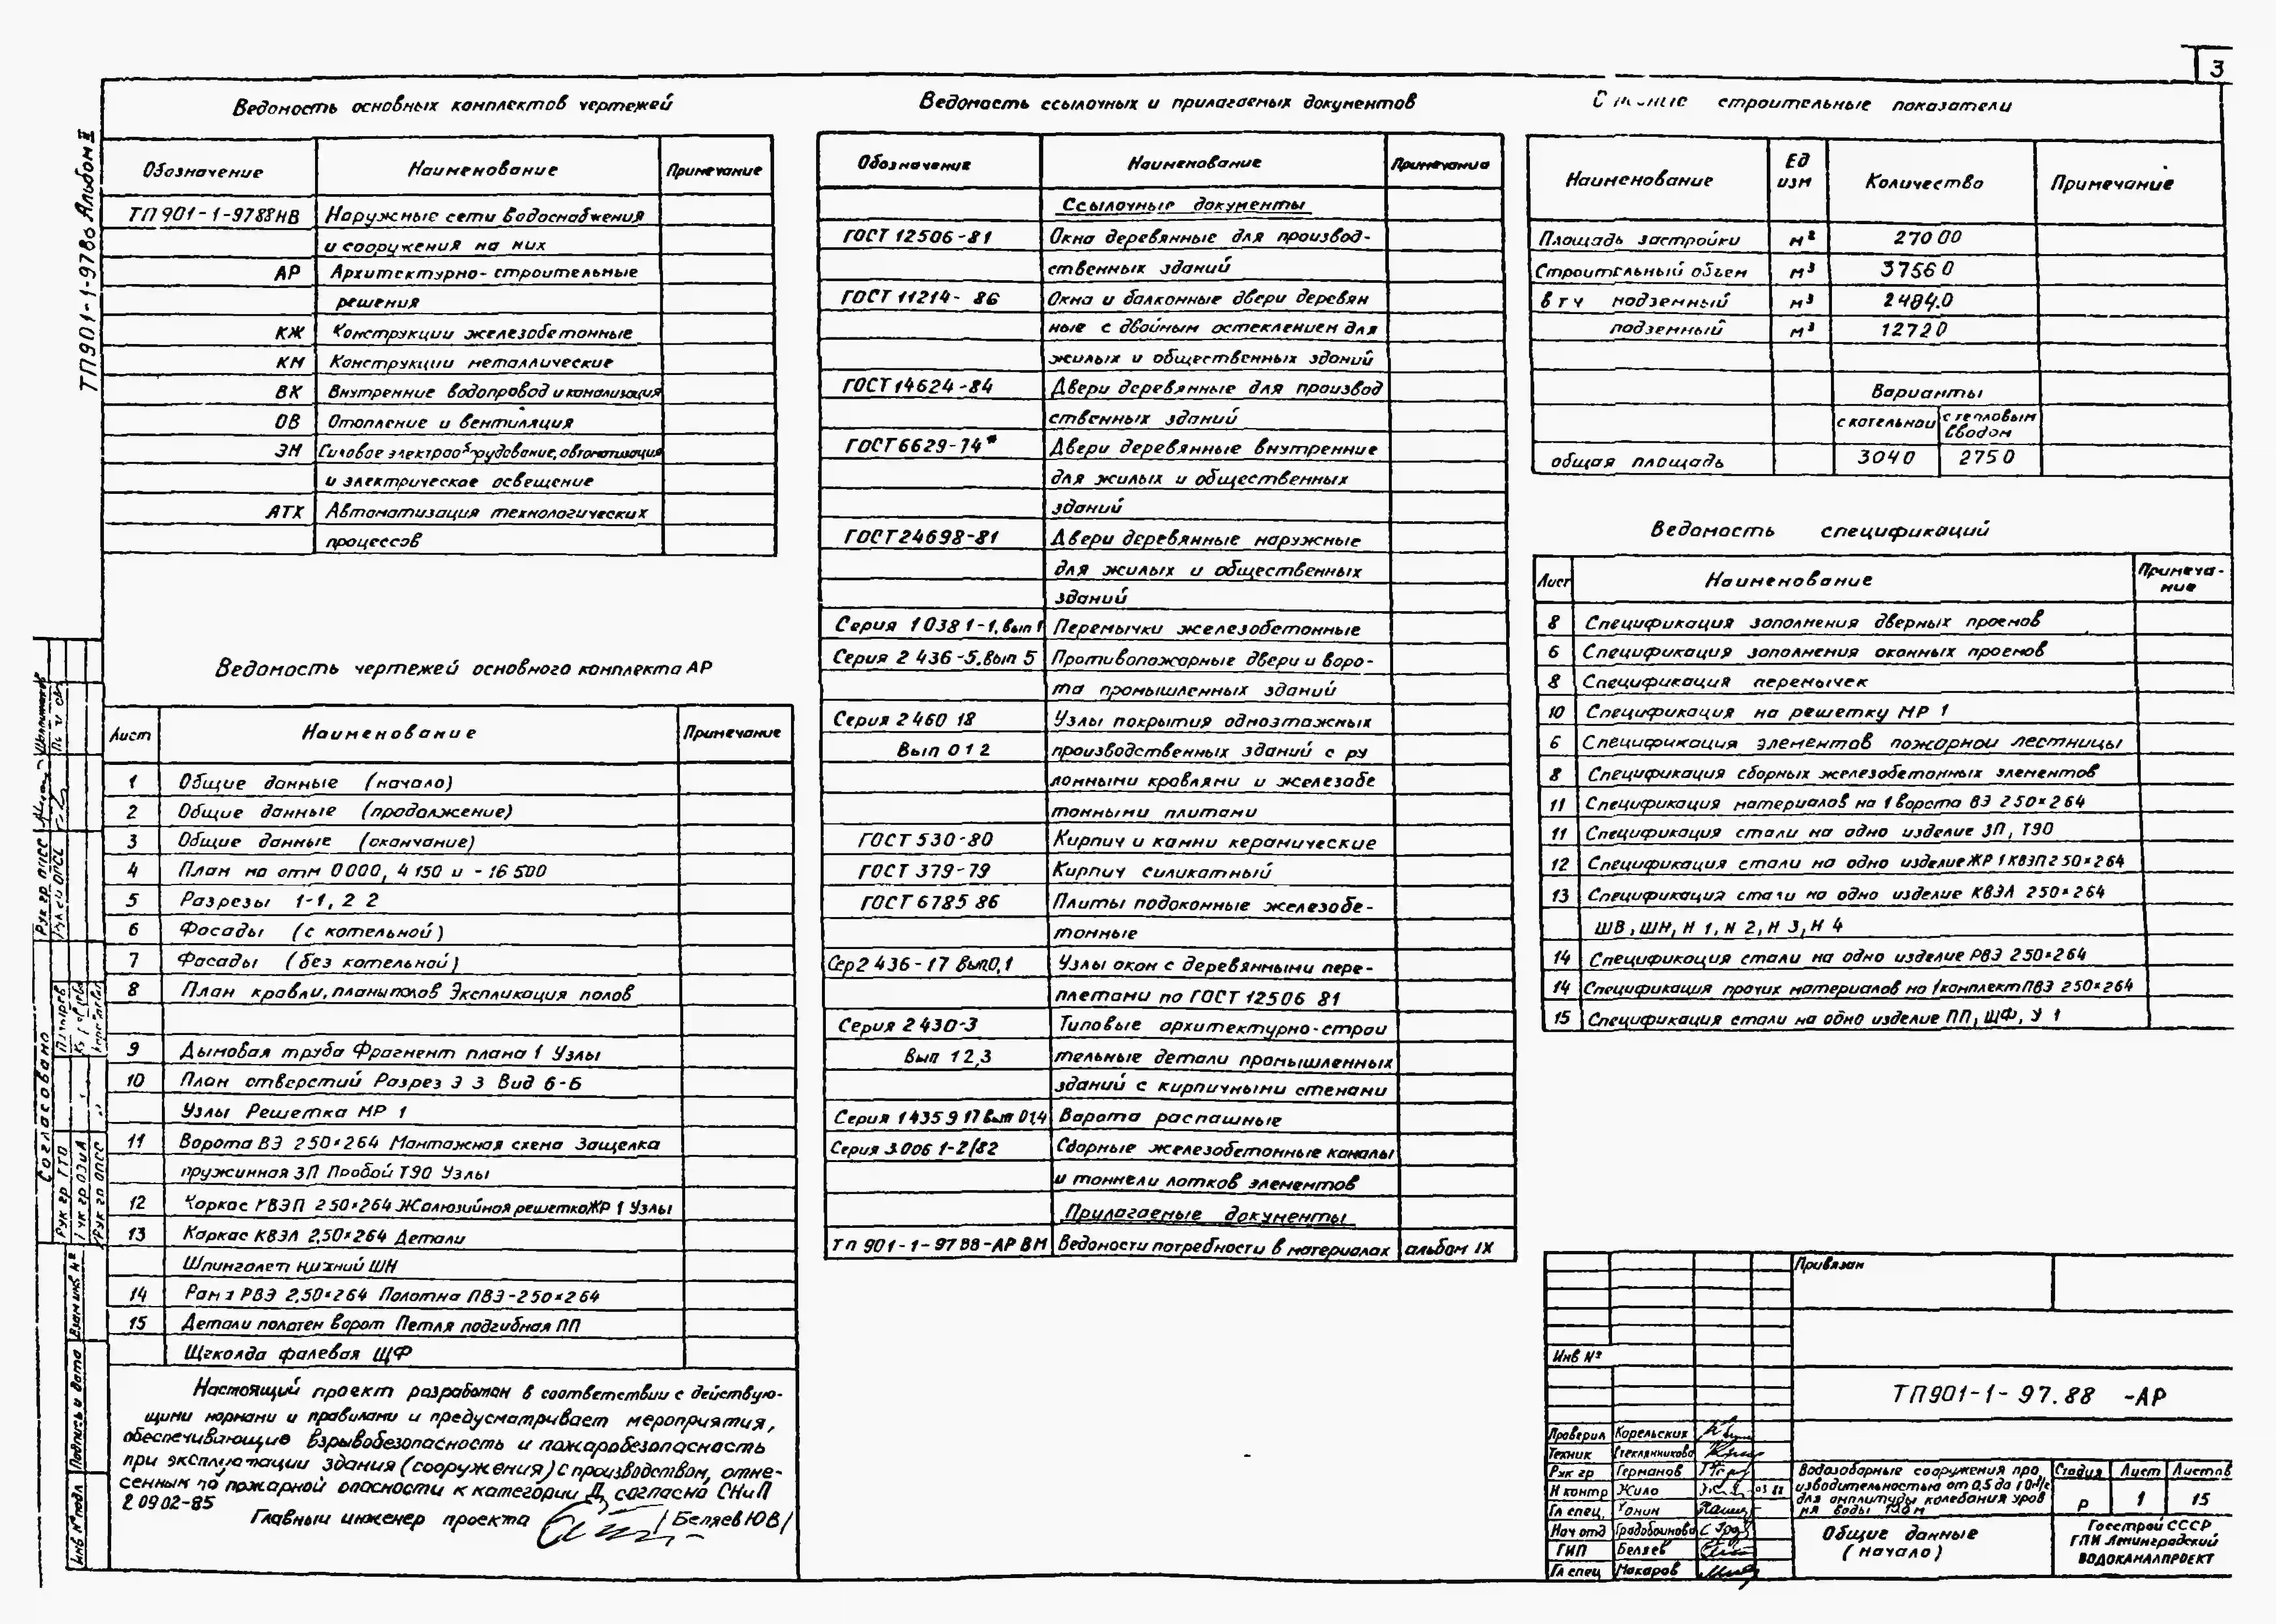 3
ТП901-1-97.88 Альбом II
Ведомость основных комплектов чертежей
Обозначение Наименование Примечание
ТП 901-1-97 88 НВ Наружные сети водоснабжения
и сооружения на них
АР Архитектурно-строительные
решения
КЖ Конструкции железобетонные
КМ Конструкции металлические
ВК Внутренние водопровод и канализация
ОВ Отопление и вентиляция
ЭМ Силовое электрооборудование, автоматизация
и электрическое освещение
АТХ Автоматизация технологических
процессов
Ведомость чертежей основного комплекта АР
Лист Наименование Примечание
1 Общие данные (начало)
2 Общие данные (продолжение)
3 Общие данные (окончание)
4 План на отм 0000, 4 150 и -16 500
5 Разрезы 1-1, 2 2
6 Фасады (с котельной)
7 Фасады (без котельной)
8 План кровли, планы полов Экспликация полов
9 Дымовая труба Фрагмент плана 1 Узлы
10 План отверстий Разрез 3 3 Вид 6-6
Узлы Решетка МР 1
11 Ворота ВЭ 250×264 Монтажная схема Защелка
пружинная ЗП Пробой Т90 Узлы
12 Каркас КВЭП 250×264 Жалюзийная решетка ЖР 1 Узлы
13 Каркас КВЭЛ 2,50×264 Детали
Шпингалет нижний ШН
14 Рама РВЭ 2,50×264 Полотна ПВЭ-250×264
15 Детали полотен ворот Петля подгибная ПП
Щеколда фалевая ЩФ
Настоящий проект разработан в соответствии с действую-
щими нормами и правилами и предусматривает мероприятия,
обеспечивающие взрывобезопасность и пожаробезопасность
при эксплуатации здания (сооружения) с производством, отне-
сенным по пожарной опасности к категории Д согласно СНиП
2 09 02-85
Главный инженер проекта /Беляев Ю В/
Ведомость ссылочных и прилагаемых документов
Обозначение Наименование Примечание
Ссылочные документы
ГОСТ 12506-81 Окна деревянные для производ-
ственных зданий
ГОСТ 11214-86 Окна и балконные двери деревян
ные с двойным остеклением для
жилых и общественных зданий
ГОСТ 14624-84 Двери деревянные для производ
ственных зданий
ГОСТ 6629-74* Двери деревянные внутренние
для жилых и общественных
зданий
ГОСТ 24698-81 Двери деревянные наружные
для жилых и общественных
зданий
Серия 1 038 1-1, вып 1 Перемычки железобетонные
Серия 2 436-5. вып 5 Противопожарные двери и воро-
та промышленных зданий
Серия 2 460 18 Узлы покрытия одноэтажных
Вып 0 1 2 производственных зданий с ру
лонными кровлями и железобе
тонными плитами
ГОСТ 530-80 Кирпич и камни керамические
ГОСТ 379-79 Кирпич силикатный
ГОСТ 6785 86 Плиты подоконные железобе-
тонные
Сер 2 436-17 вып.0,1 Узлы окон с деревянными пере-
плетами по ГОСТ 12506 81
Серия 2 430-3 Типовые архитектурно-строи
Вып 1 2,3 тельные детали промышленных
зданий с кирпичными стенами
Серия 1 435 9 17 вып 0,1,4 Ворота распашные
Серия 3.006 1-2/82 Сборные железобетонные каналы
и тоннели лотков элементов
Прилагаемые документы
Тп 901-1-97 88-АР ВМ Ведомости потребности в материалах альбом IX
строительные показатели
Наименование Ед изм Количество Примечание
Площадь застройки м² 270 00
Строительный объем м³ 3756 0
в т ч надземный м³ 2484.0
подземный м³ 1272 0
Варианты
с котельной с тепловым вводом
общая площадь 304 0 275 0
Ведомость спецификаций
Лист Наименование Примечание
8 Спецификация заполнения дверных проемов
6 Спецификация заполнения оконных проемов
8 Спецификация перемычек
10 Спецификация на решетку МР 1
6 Спецификация элементов пожарной лестницы
8 Спецификация сборных железобетонных элементов
11 Спецификация материалов на 1 ворота ВЭ 250×264
11 Спецификация стали на одно изделие ЗП, Т90
12 Спецификация стали на одно изделие ЖР 1 КВЭП 2 50×264
13 Спецификация стали на одно изделие КВЭЛ 250×264
ШВ, ШН, Н 1, Н 2, Н 3, Н 4
14 Спецификация стали на одно изделие РВЭ 250×264
14 Спецификация прочих материалов на 1 комплект ПВЭ 250×264
15 Спецификация стали на одно изделие ПП, ЩФ, У 1
Привязан
Инв №
ТП901-1-97.88 -АР
Проверил Корельских
Техник Стеклянникова
Рук гр Германов
Н контр Жило 03 88
Гл спец.
Нач отд
ГИП Беляев
Гл спец Макаров
Водозаборные сооружения про
изводительностью от 0,5 до 1 0
для амплитуды колебания уров
ня воды
Стадия Лист Листов
Р 1 15
Общие данные
(начало)
Госстрой СССР
ГПИ Ленинградский
ВОДОКАНАЛПРОЕКТ
Согласовано
Рук гр ТТО
Рук гр ОПСС
Взам инв №
Подпись и дата
Инв № подл